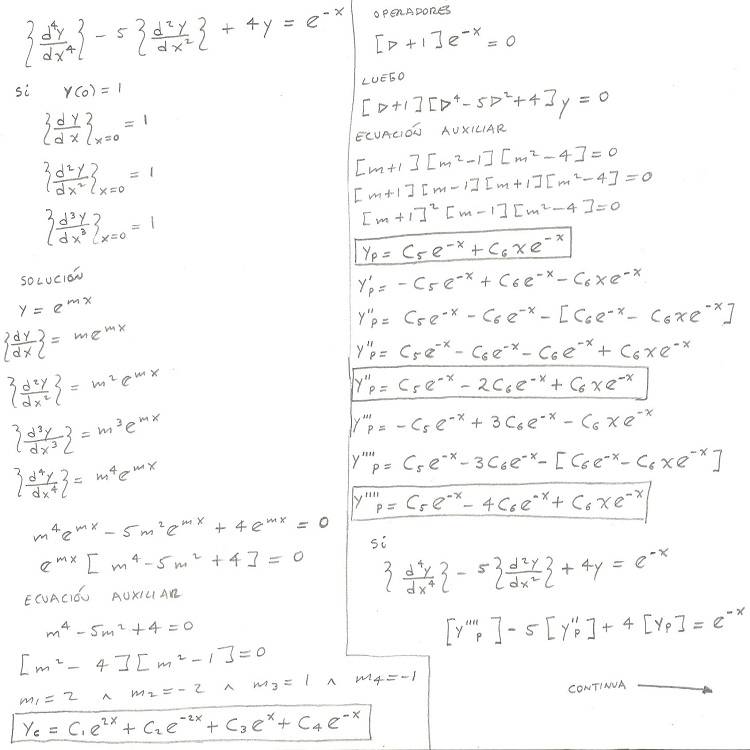 {d⁴y/dx⁴} - 5 {d²y/dx²} + 4y = e^-x
Si Y(0) = 1
{dY/dx}x=0 = 1
{d²Y/dx²}x=0 = 1
{d³Y/dx³}x=0 = 1
SOLUCIÓN
Y = e^mx
{dy/dx} = me^mx
{d²y/dx²} = m²e^mx
{d³y/dx³} = m³e^mx
{d⁴y/dx⁴} = m⁴e^mx
m⁴e^mx - 5m²e^mx + 4e^mx = 0
e^mx [m⁴ - 5m² + 4] = 0
ECUACIÓN AUXILIAR
m⁴ - 5m² + 4 = 0
[m² - 4][m² - 1] = 0
m₁ = 2 ∧ m₂ = -2 ∧ m₃ = 1 ∧ m₄ = -1
Yc = C₁e^2x + C₂e^-2x + C₃e^x + C₄e^-x
OPERADORES
[D+1]e^-x = 0
LUEGO
[D+1][D⁴ - 5D² + 4]y = 0
ECUACIÓN AUXILIAR
[m+1][m²-1][m²-4] = 0
[m+1][m-1][m+1][m²-4] = 0
[m+1]²[m-1][m²-4] = 0
Yp = C₅e^-x + C₆xe^-x
Y'p = -C₅e^-x + C₆e^-x - C₆xe^-x
Y''p = C₅e^-x - C₆e^-x - [C₆e^-x - C₆xe^-x]
Y''p = C₅e^-x - C₆e^-x - C₆e^-x + C₆xe^-x
Y''p = C₅e^-x - 2C₆e^-x + C₆xe^-x
Y'''p = -C₅e^-x + 3C₆e^-x - C₆xe^-x
Y''''p = C₅e^-x - 3C₆e^-x - [C₆e^-x - C₆xe^-x]
Y''''p = C₅e^-x - 4C₆e^-x + C₆xe^-x
Si
{d⁴y/dx⁴} - 5{d²y/dx²} + 4y = e^-x
[Y''''p] - 5[Y''p] + 4[Yp] = e^-x
CONTINUA →